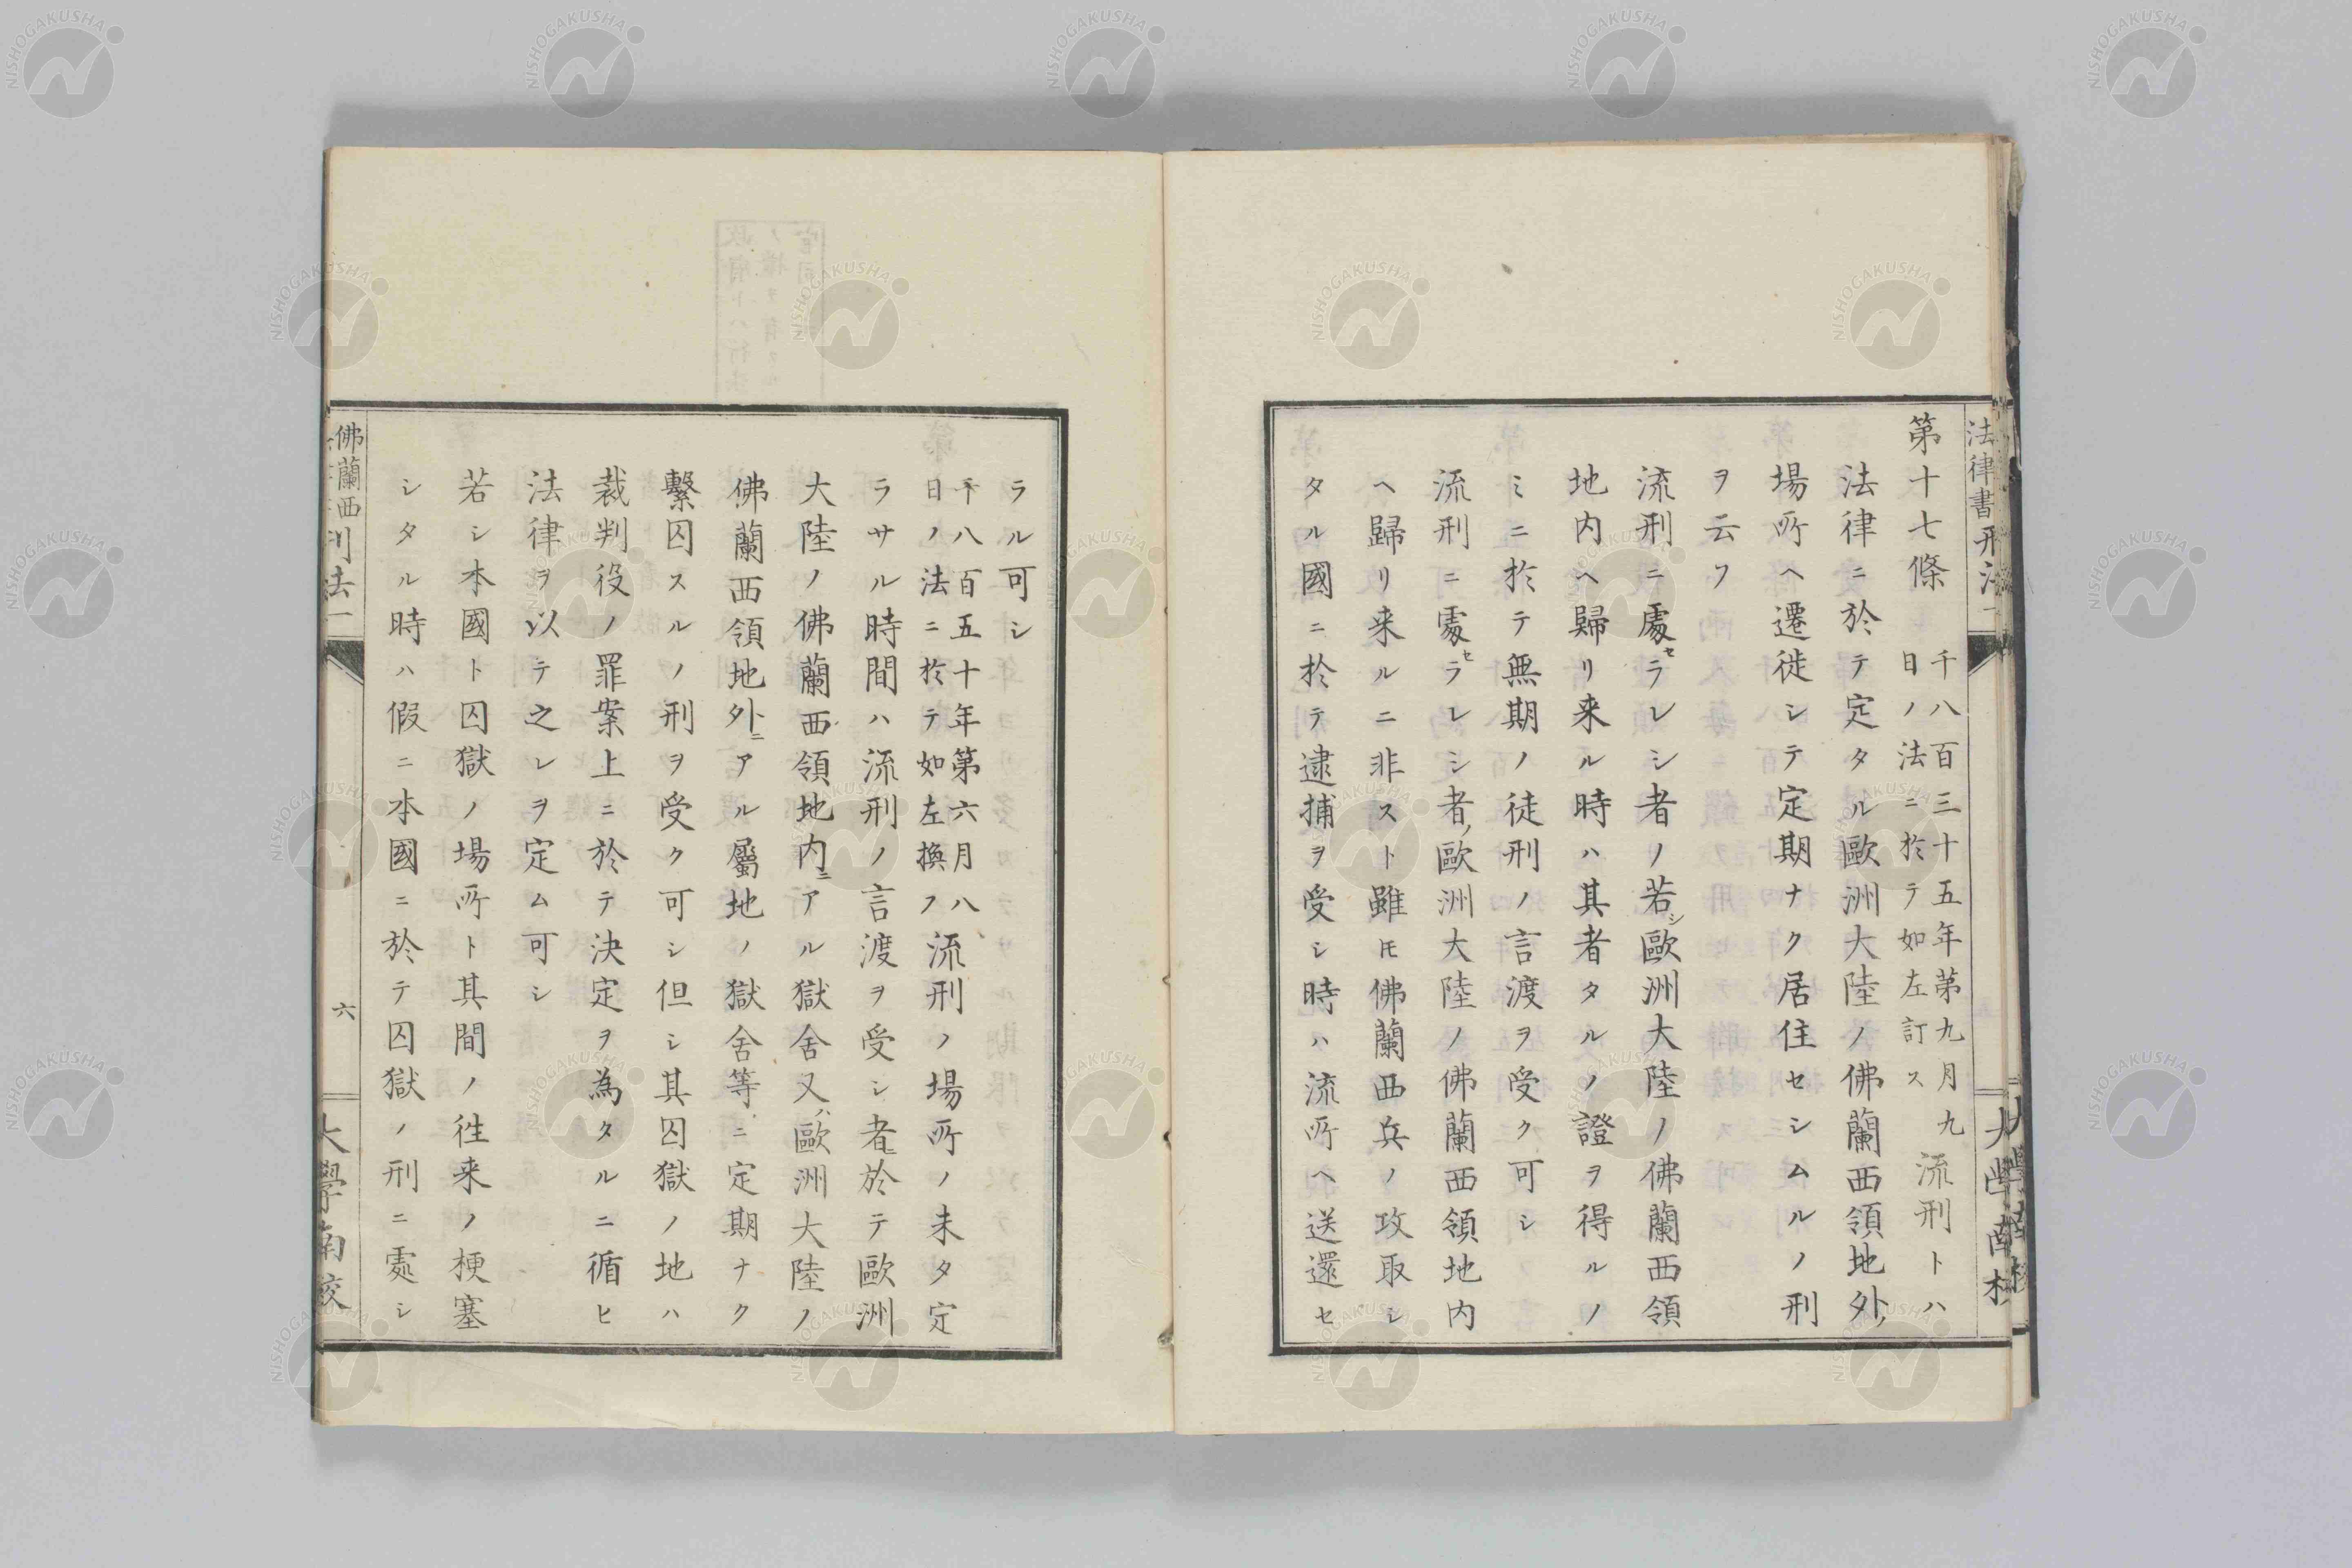 法律書刑法一
第十七條 千八百三十五年第九月九
日ノ法ニ於テ如左訂ス 流刑トハ
法律ニ於テ定タル歐洲大陸ノ佛蘭西領地外ノ
場所ヘ遷徙シテ定期ナク居住セシムルノ刑
ヲ云フ
流刑ニ處セラレシ者ノ若シ歐洲大陸ノ佛蘭西領
地内ヘ歸リ来ル時ハ其者タルノ證ヲ得ルノ
ミニ於テ無期ノ徒刑ノ言渡ヲ受ク可シ
流刑ニ處セラレシ者ノ歐洲大陸ノ佛蘭西領地内
ヘ歸リ来ルニ非ストモ雖佛蘭西兵ノ攻取シ
タル國ニ於テ逮捕ヲ受シ時ハ流所ヘ送還セ
大學南校
ラル可シ
千八百五十年第六月八
日ノ法ニ於テ如左換フ 流刑ノ場所ノ未タ定
ラサル時間ハ流刑ノ言渡ヲ受シ者ニ於テ歐洲
大陸ノ佛蘭西領地内ニアル獄舍又ハ歐洲大陸ノ
佛蘭西領地外ニアル屬地ノ獄舍等ニ定期ナク
繫囚スルノ刑ヲ受ク可シ但シ其囚獄ノ地ハ
裁判役ノ罪案上ニ於テ決定ヲ為タルニ循ヒ
法律ヲ以テ之レヲ定ム可シ
若シ本國ト囚獄ノ場所ト其間ノ徃来ノ梗塞
シタル時ハ假ニ本國ニ於テ囚獄ノ刑ニ處シ
佛蘭西
刑法一
六
大學南校
NISHOGAKUSHA